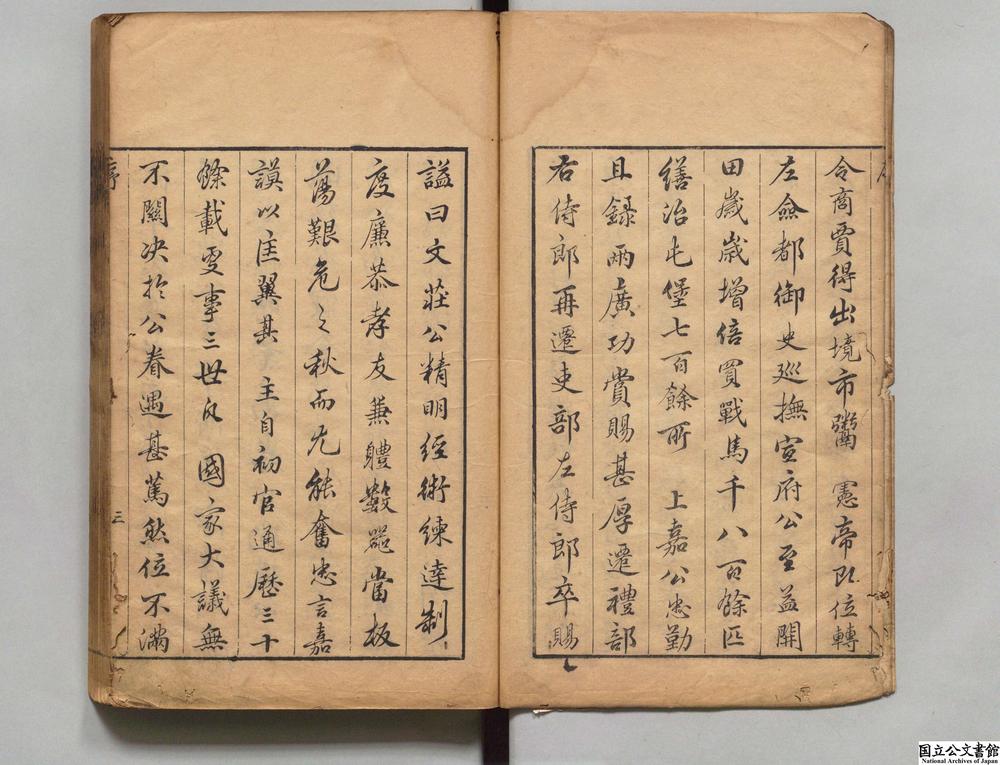 令商賈得出境市鬻　憲帝即位轉
左僉都御史巡撫宣府公至益開
田歲歲增倍買戰馬千八百餘匹
繕治屯堡七百餘所　上嘉公忠勤
且錄兩廣功賞賜甚厚遷禮部
右侍郎再遷吏部左侍郎卒賜
謚曰文莊公精明經術練達制
度廉恭孝友兼軆數器當板
蕩艱危之秋而尤能奮忠言嘉
謨以匡翼其　主自初官通歷三十
餘載更事三世凡　國家大議無
不關決於公眷遇甚篤然位不滿
序
三
国立公文書館
National Archives of Japan